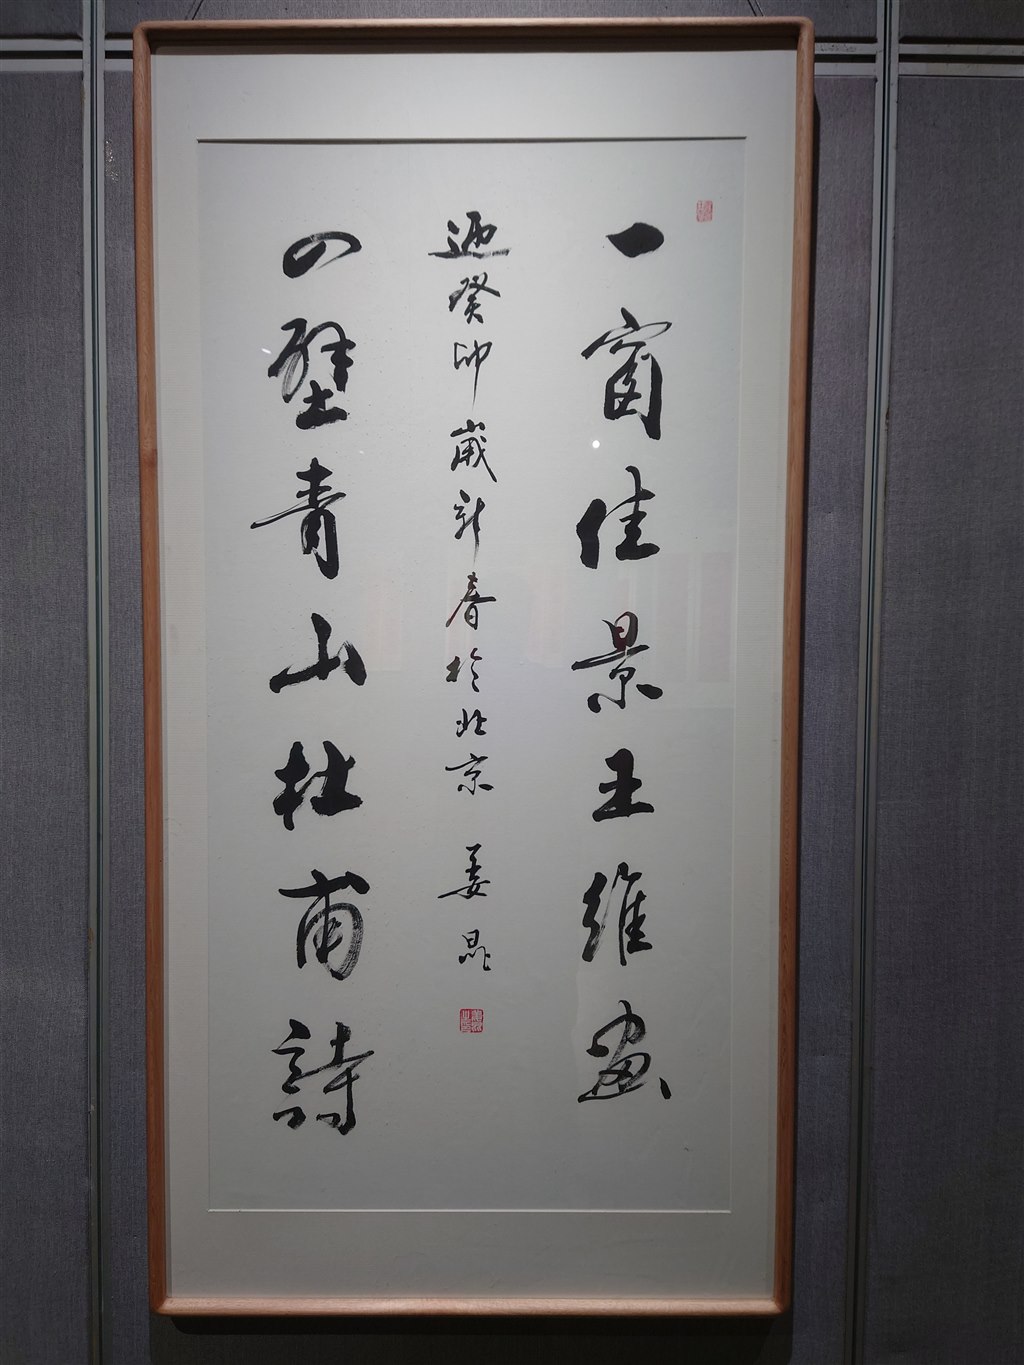 一窗佳景王維畫
迎癸卯歲新春於北京 姜昆
四壁青山杜甫詩